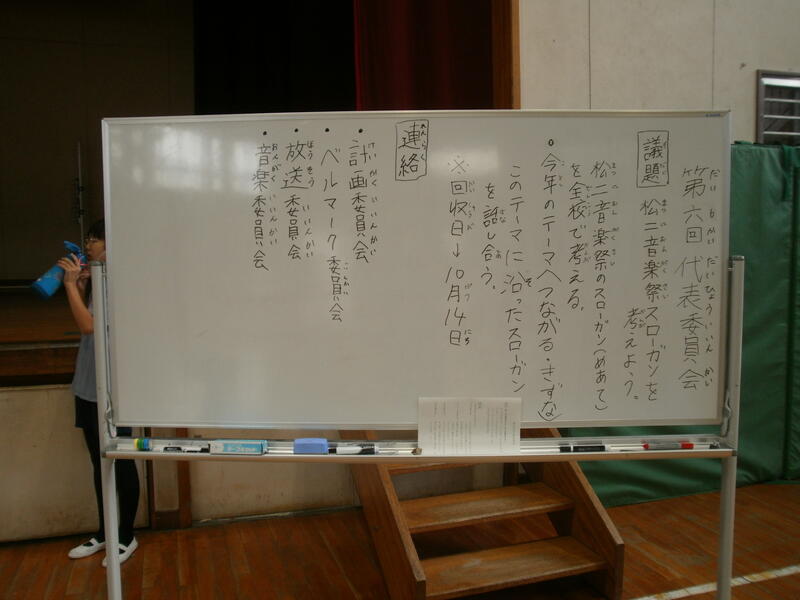 第六回 代表委員会
議題 松二音楽祭スローガンを
考えよう。
松二音楽祭のスローガン(めあて)
を全校で考える。
○今年のテーマへつながる・きずな
このテーマに沿ったスローガン
を話し合う。
※回収日→10月14日
連絡
・計画委員会
・ベルマーク委員会
・放送委員会
・音楽委員会